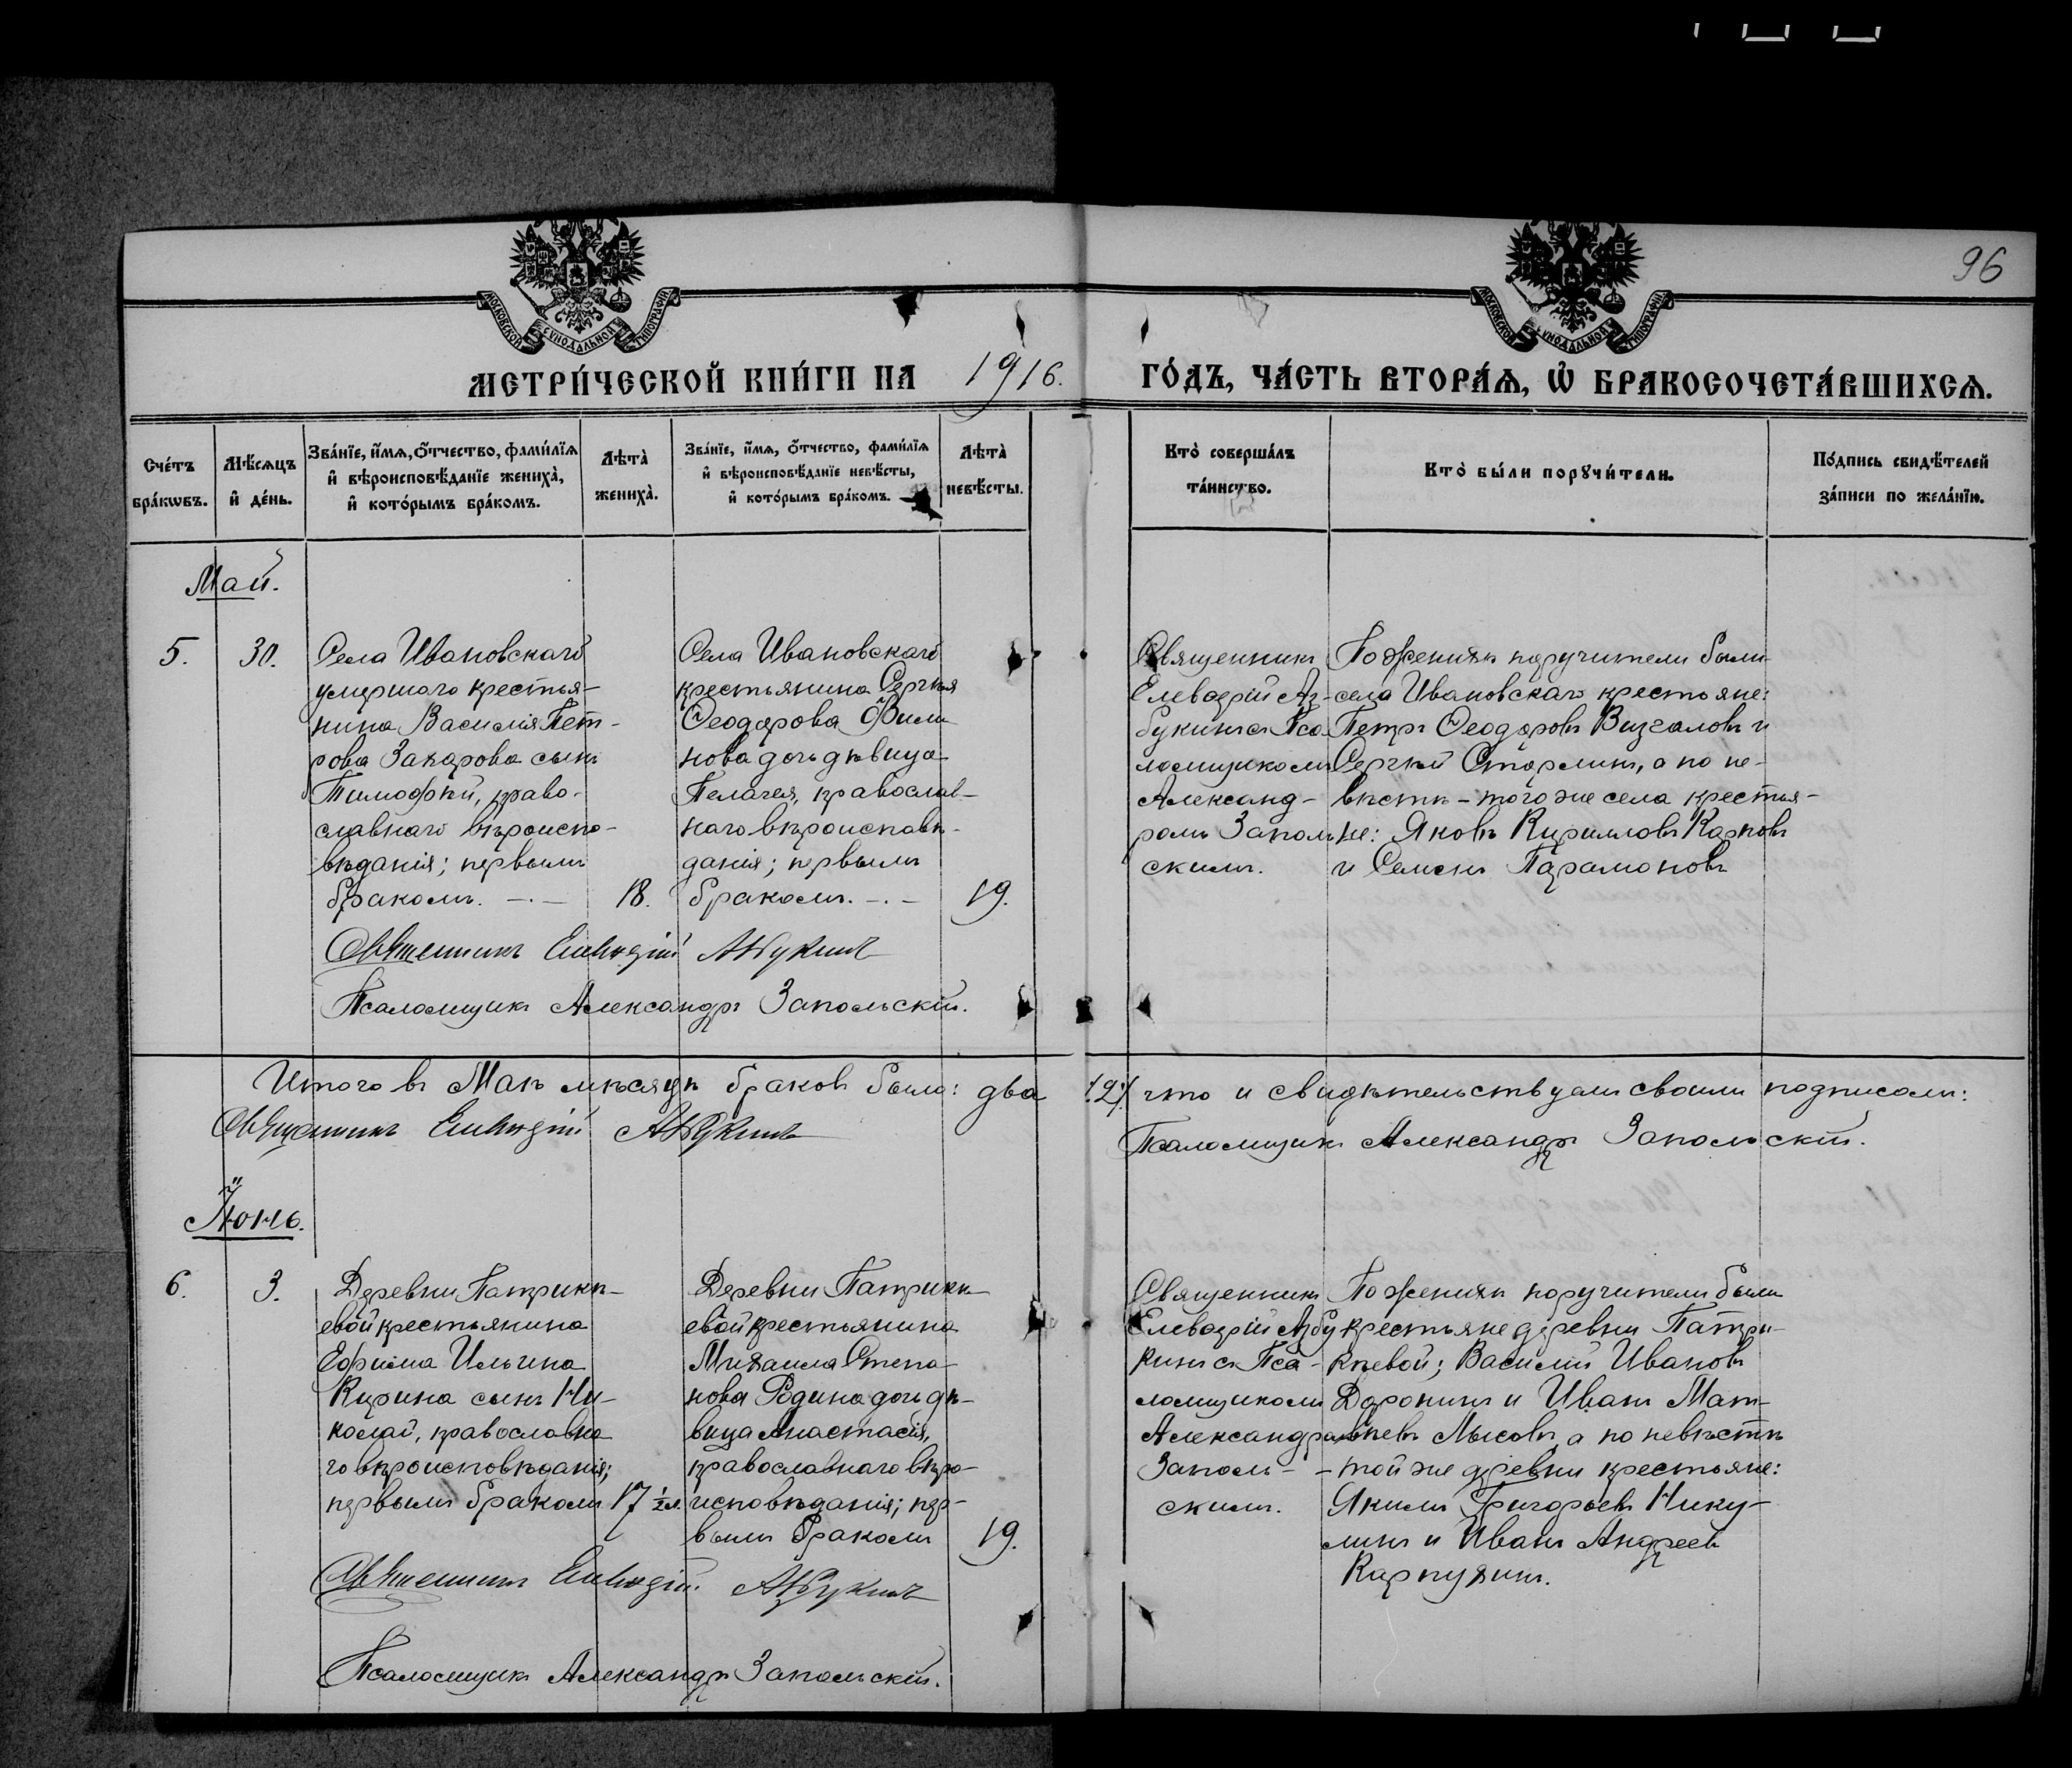 96
МОСКОВСКОЙ СѴНОДАЛЬНОЙ ТИПОГРАФІИ
МОСКОВСКОЙ СѴНОДАЛЬНОЙ ТИПОГРАФІИ
МЕТРИ́ЧЕСКОЙ КНИ́ГИ НА 1916. ГО́ДЪ, ЧА́СТЬ ВТОРА́Ѧ, Ѡ҆ БРАКОСОЧЕТА́ВШИХСѦ.
Сче́тъ
бра́кѡвъ.
Мѣ́сѧцъ
и҆ де́нь.
Зва́нїе, и҆́мѧ, ѻ҆́тчество, фами́лїѧ
и҆ вѣроисповѣ́данїе жениха̀,
и҆ кото́рымъ бра́комъ.
Лѣта̀
жениха̀.
Зва́нїе, и҆́мѧ, ѻ҆́тчество, фами́лїѧ
и҆ вѣроисповѣ́данїе невѣ́сты,
и҆ кото́рымъ бра́комъ.
Лѣта̀
невѣ́сты.
Кто̀ соверша́лъ
та́инство.
Кто̀ бы́ли порꙋчи́тели.
По́дпись свидѣ́телей
за́писи по жела́нїю.
Май.
5.
30.
Села Ивановскаго
умершаго крестья-
нина Василія Пет-
рова Захарова сынъ
Тимофѣй, право-
славнаго вѣроиспо-
вѣданія; первымъ
бракомъ. -.-
18.
Села Ивановскаго
крестьянина Сергѣя
Ѳеодорова Фили
нова дочь дѣвица
Пелагея, православ-
наго вѣроисповѣ-
данія; первымъ
бракомъ. -.-
19.
Священникъ
Елевзрій Аз-
букинъ съ Пса
ломщикомъ
Александ-
ромъ Заполь
скимъ.
По женихѣ поручители были
села Ивановскаго крестьяне:
Петръ Ѳеодоровъ Визгаловъ и
Сергѣй Стармин, а по не-
вѣстѣ - того же села крестья-
не: Яковъ Кирилловъ Карповъ
и Семенъ Парамоновъ
Священникъ Елевзрій Азбукинъ
Псаломщикъ Александръ Запольскій.
Итого въ Маѣ мѣсяцѣ браковъ было: два /2/ что и свидѣтельствуемъ своими подписями:
Священникъ Елевзрій Азбукинъ
Псаломщикъ Александръ Запольскій.
Іюнь.
6.
3.
Деревни Патрикѣ-
евой крестьянина
Ефима Ильина
Кирина сынъ Ни-
колай, православна
го вѣроисповѣданія;
первымъ бракомъ
17 ½ л.
Деревни Патрикѣ-
евой крестьянина
Михаила Степа-
нова Родина дочь дѣ-
вица Анастасія,
православнаго вѣро-
исповѣданія; пер-
вымъ бракомъ
19.
Священникъ
Елевзрій Азбу
кинъ съ Пса-
ломщикомъ
Александромъ
Заполь-
скимъ.
По женихѣ поручители были
крестьяне деревни Патри-
кѣевой; Василій Ивановъ
Доронинъ и Иванъ Мат-
вѣевъ Лысовъ, а по невѣстѣ
- той же деревни крестьяне:
Якимъ Григорьевъ Нику-
линъ и Иванъ Андреевъ
Карпухинъ.
Священникъ Елевзрій Азбукинъ
Псаломщикъ Александръ Запольскій.